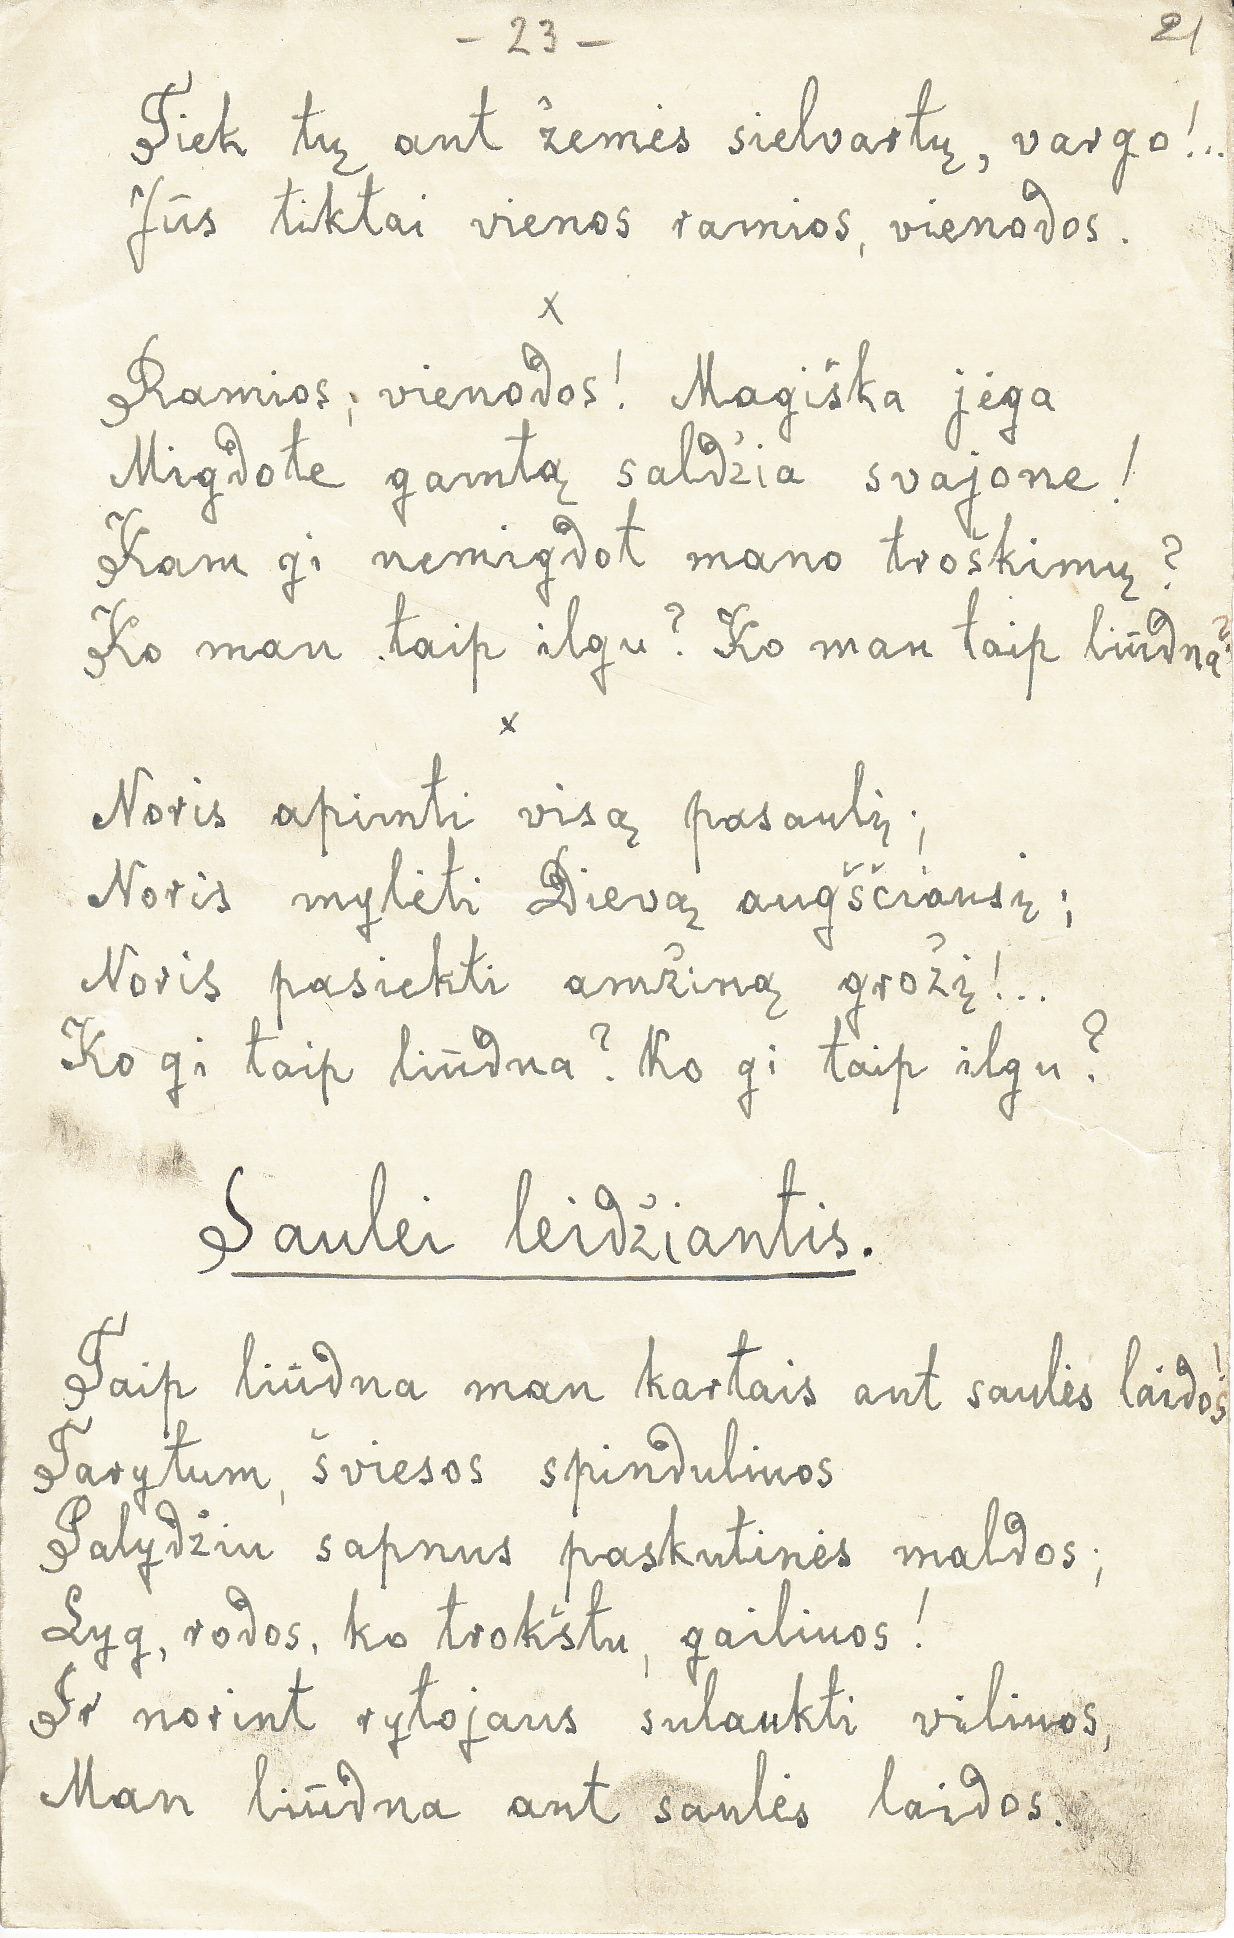 - 23 -
21
Tiek tų ant žemės sielvartų, vargo!..
Jūs tiktai vienos ramios, vienodos.
x
Ramios, vienodos! Magiška jėga
Migdote gamtą saldžia svajone!
Kam gi nemigdot mano troškimų?
Ko man taip ilgu? Ko man taip liūdna?
x
Noris apimti visą pasaulį;
Noris mylėti Dievą augščiausį;
Noris pasiekti amžiną grožį!...
Ko gi taip liūdna? Ko gi taip ilgu?
Saulei leidžiantis.
Taip liūdna man kartais ant saulės laidos!
Tarytum, šviesos spinduliuos
Palydžiu sapnus paskutinės maldos;
Lyg, rodos, ko trokštu, gailiuos!
Ir norint rytojaus sulaukti viliuos,
Man liūdna ant saulės laidos.